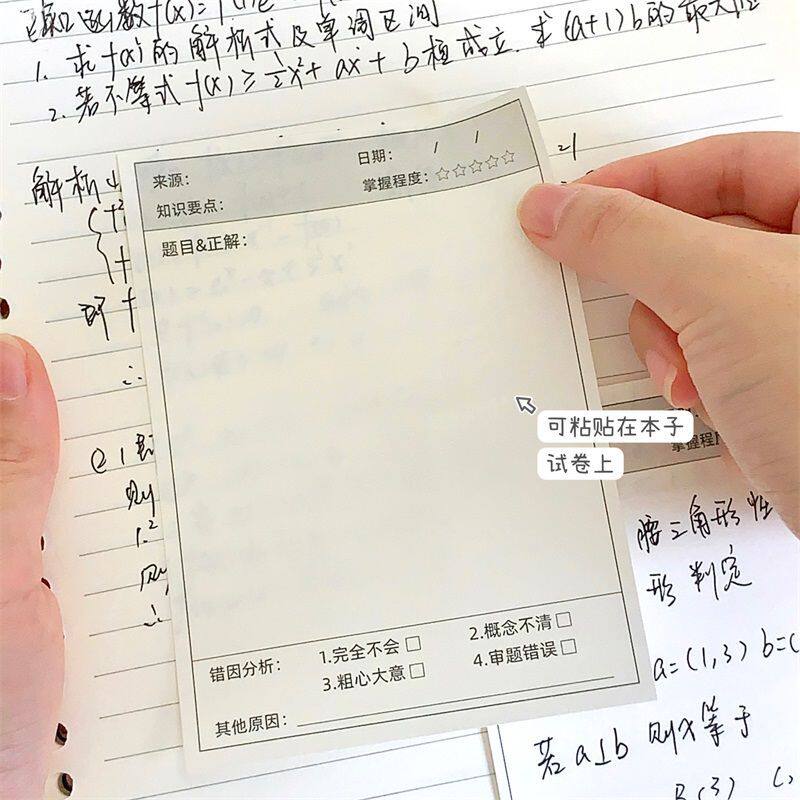 1. 求f(x)的解析式及单调区间
2. 若不等式f(x)≥½x²+ax+b恒成立.求(a+1)b的最大值
解析
来源：
日期： / /
知识要点：
掌握程度：☆☆☆☆☆
题目&正解：
可粘贴在本子
试卷上
掌握程度
腰三角形性
形判定
a=(1,3) b=
若a⊥b 则x等于
错因分析：
1.完全不会□
2.概念不清□
3.粗心大意□
4.审题错误□
其他原因：